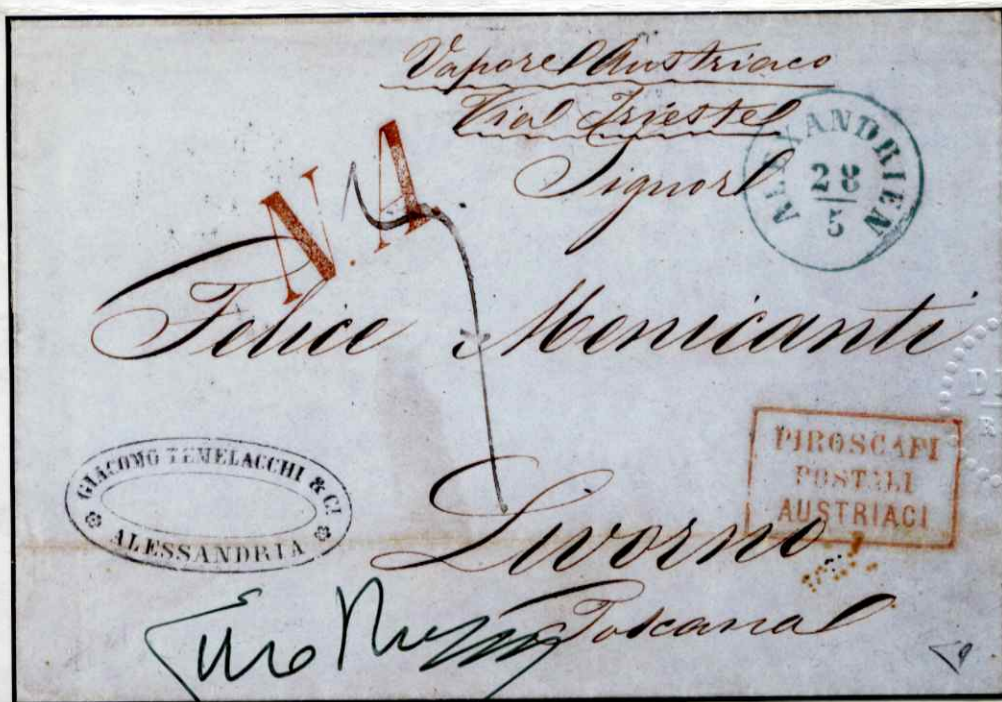 Vapore Austriaco
Via Trieste
Signor
ALEXANDRIEN
28
5
N.A.
Felice Menicanti
GIACOMO TEMELACCHI & CI
ALESSANDRIA
PIROSCAFI
POSTALI
AUSTRIACI
Livorno
Toscana